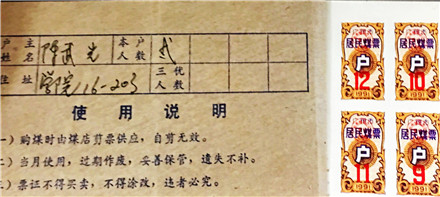 户主姓名 陈武光 本户人数 贰
住址 学院16-203 三优人数
使用说明
一)购煤时由煤店剪票供应,自剪无效。
二)当月使用,过期作废,妥善保管,遗失不补。
三)票证不得买卖,不得涂改,违者必究。
居民煤票
户
12
1991
居民煤票
户
10
1991
居民煤票
户
11
1991
居民煤票
户
9
1991